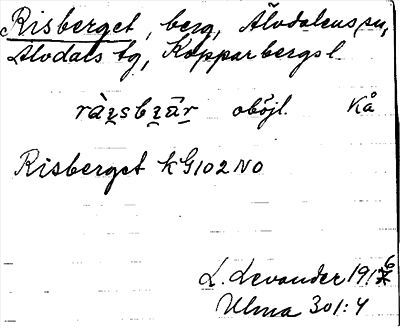 Risberget, berg, Älvdalens sn,
Älvdals tg, Kopparbergs l.
oböjl. Kå
Risberget KG102NO
L. Levander 1916
Ulma 301:4